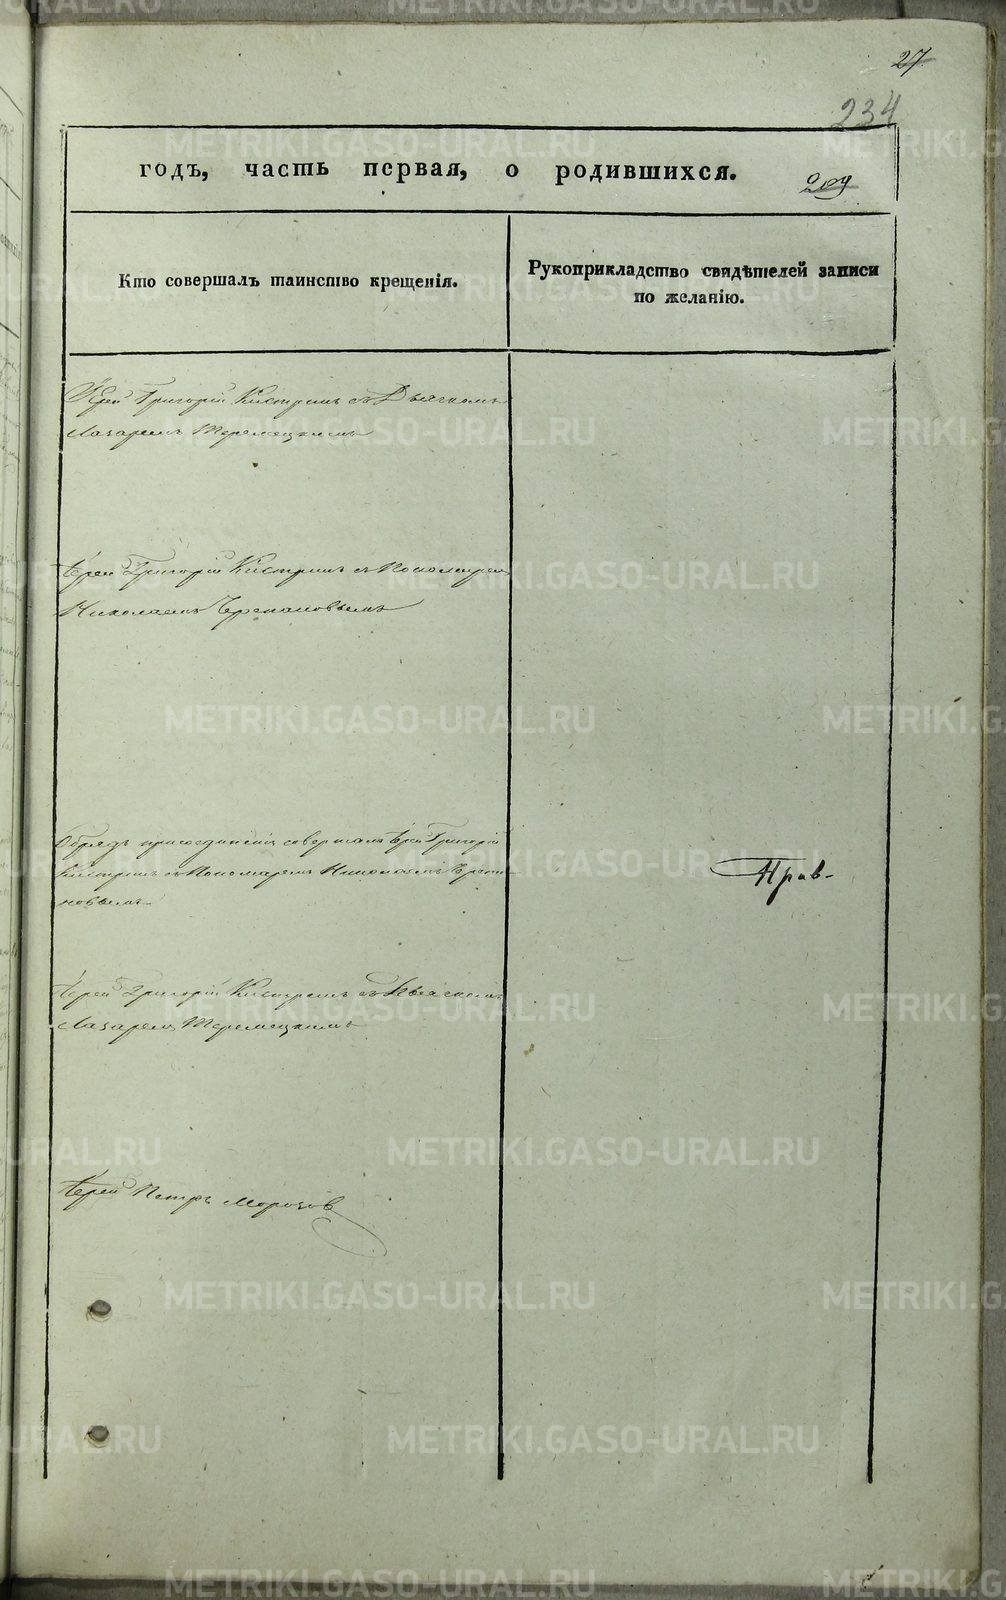 27
234
годъ, часть первая, о родившихся.
209
Кто совершалъ таинство крещенія.
Рукоприкладство свидѣтелей записи
по желанію.
Іерей Григорій Кистринъ съ Дьячкомъ
Лазаремъ Теремецкимъ
Іерей Григорій Кистринъ съ Пономаремъ
Николаемъ Черепановымъ
Обрядъ присоединенія совершалъ Іерей Григорій
Кистринъ съ Пономаремъ Николаемъ Черепа
новымъ
Прав-
Іерей Григорій Кистринъ съ Дьячкомъ
Лазаремъ Теремецкимъ
Іерей Петръ Морозов
METRIKI.GASO-URAL.RU